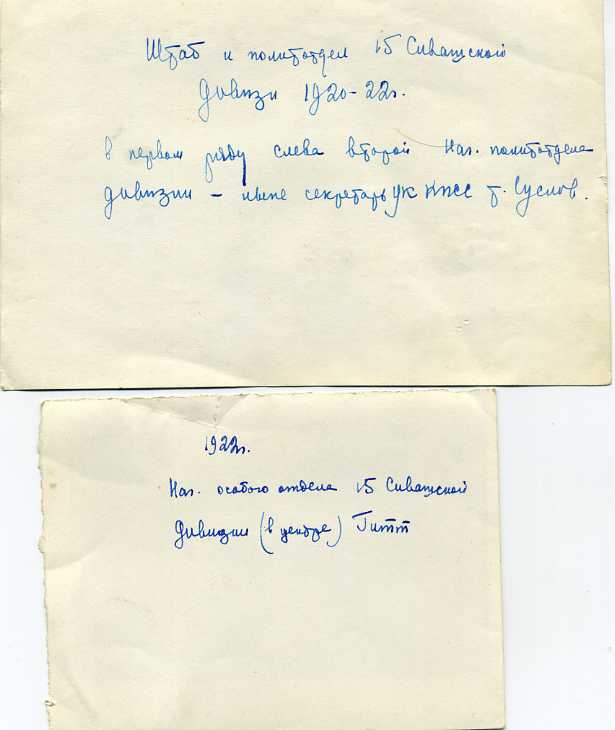 Штаб и политотдел 15 Сивашской
Дивизи 1920-22г.
в первом ряду слева второй Наг. политотдела
дивизии – ныне секретарь ЦК КПСС т. Суслов.
1922г.
Наг. особого отдела 15 Сивашской
Дивизии (в центре) Гитт